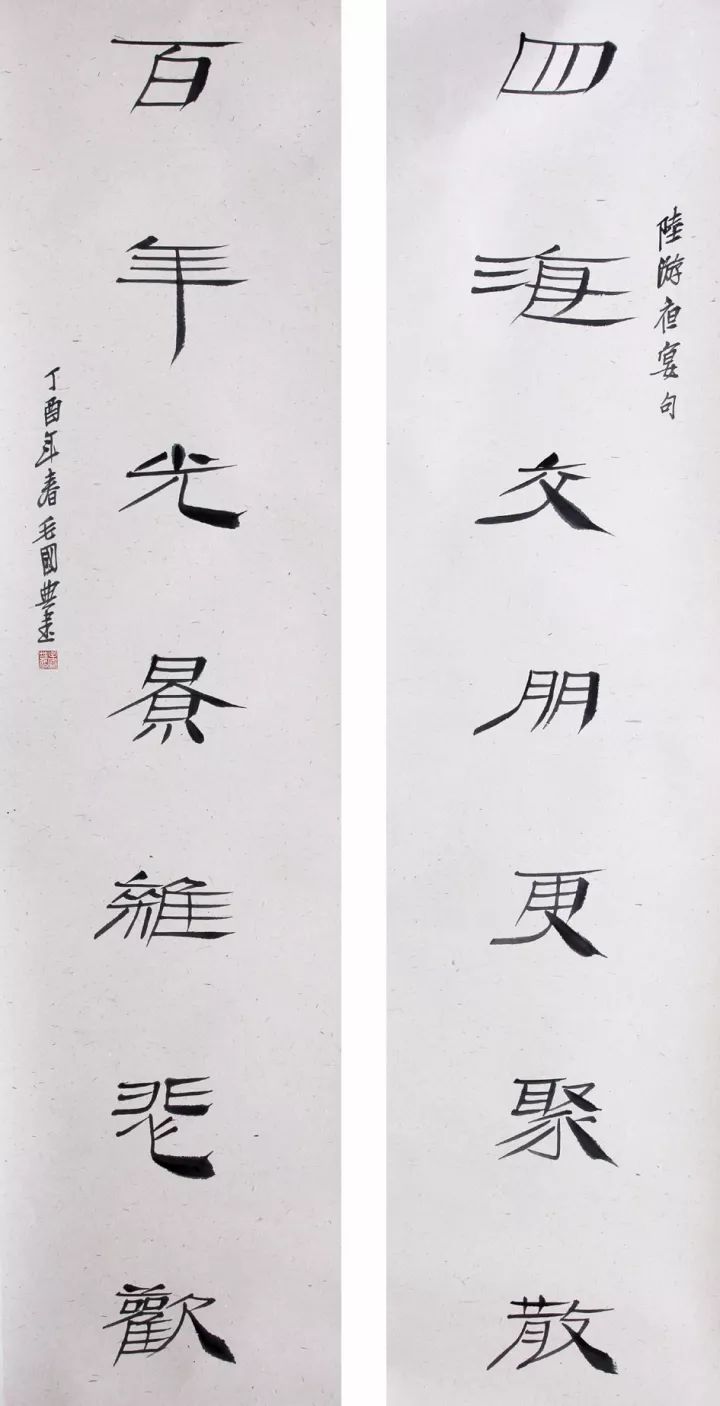 四海交朋更聚散
陸游夜宴句
百年光景雜悲歡
丁酉年春毛國典書